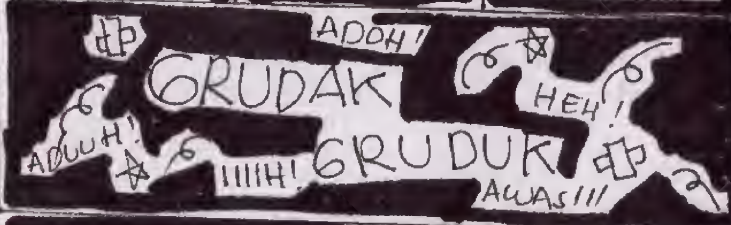 ADOH!
GRUDAK
HEH!
ADUUH!
IIIIH!
GRUDUK
AWAS!!!